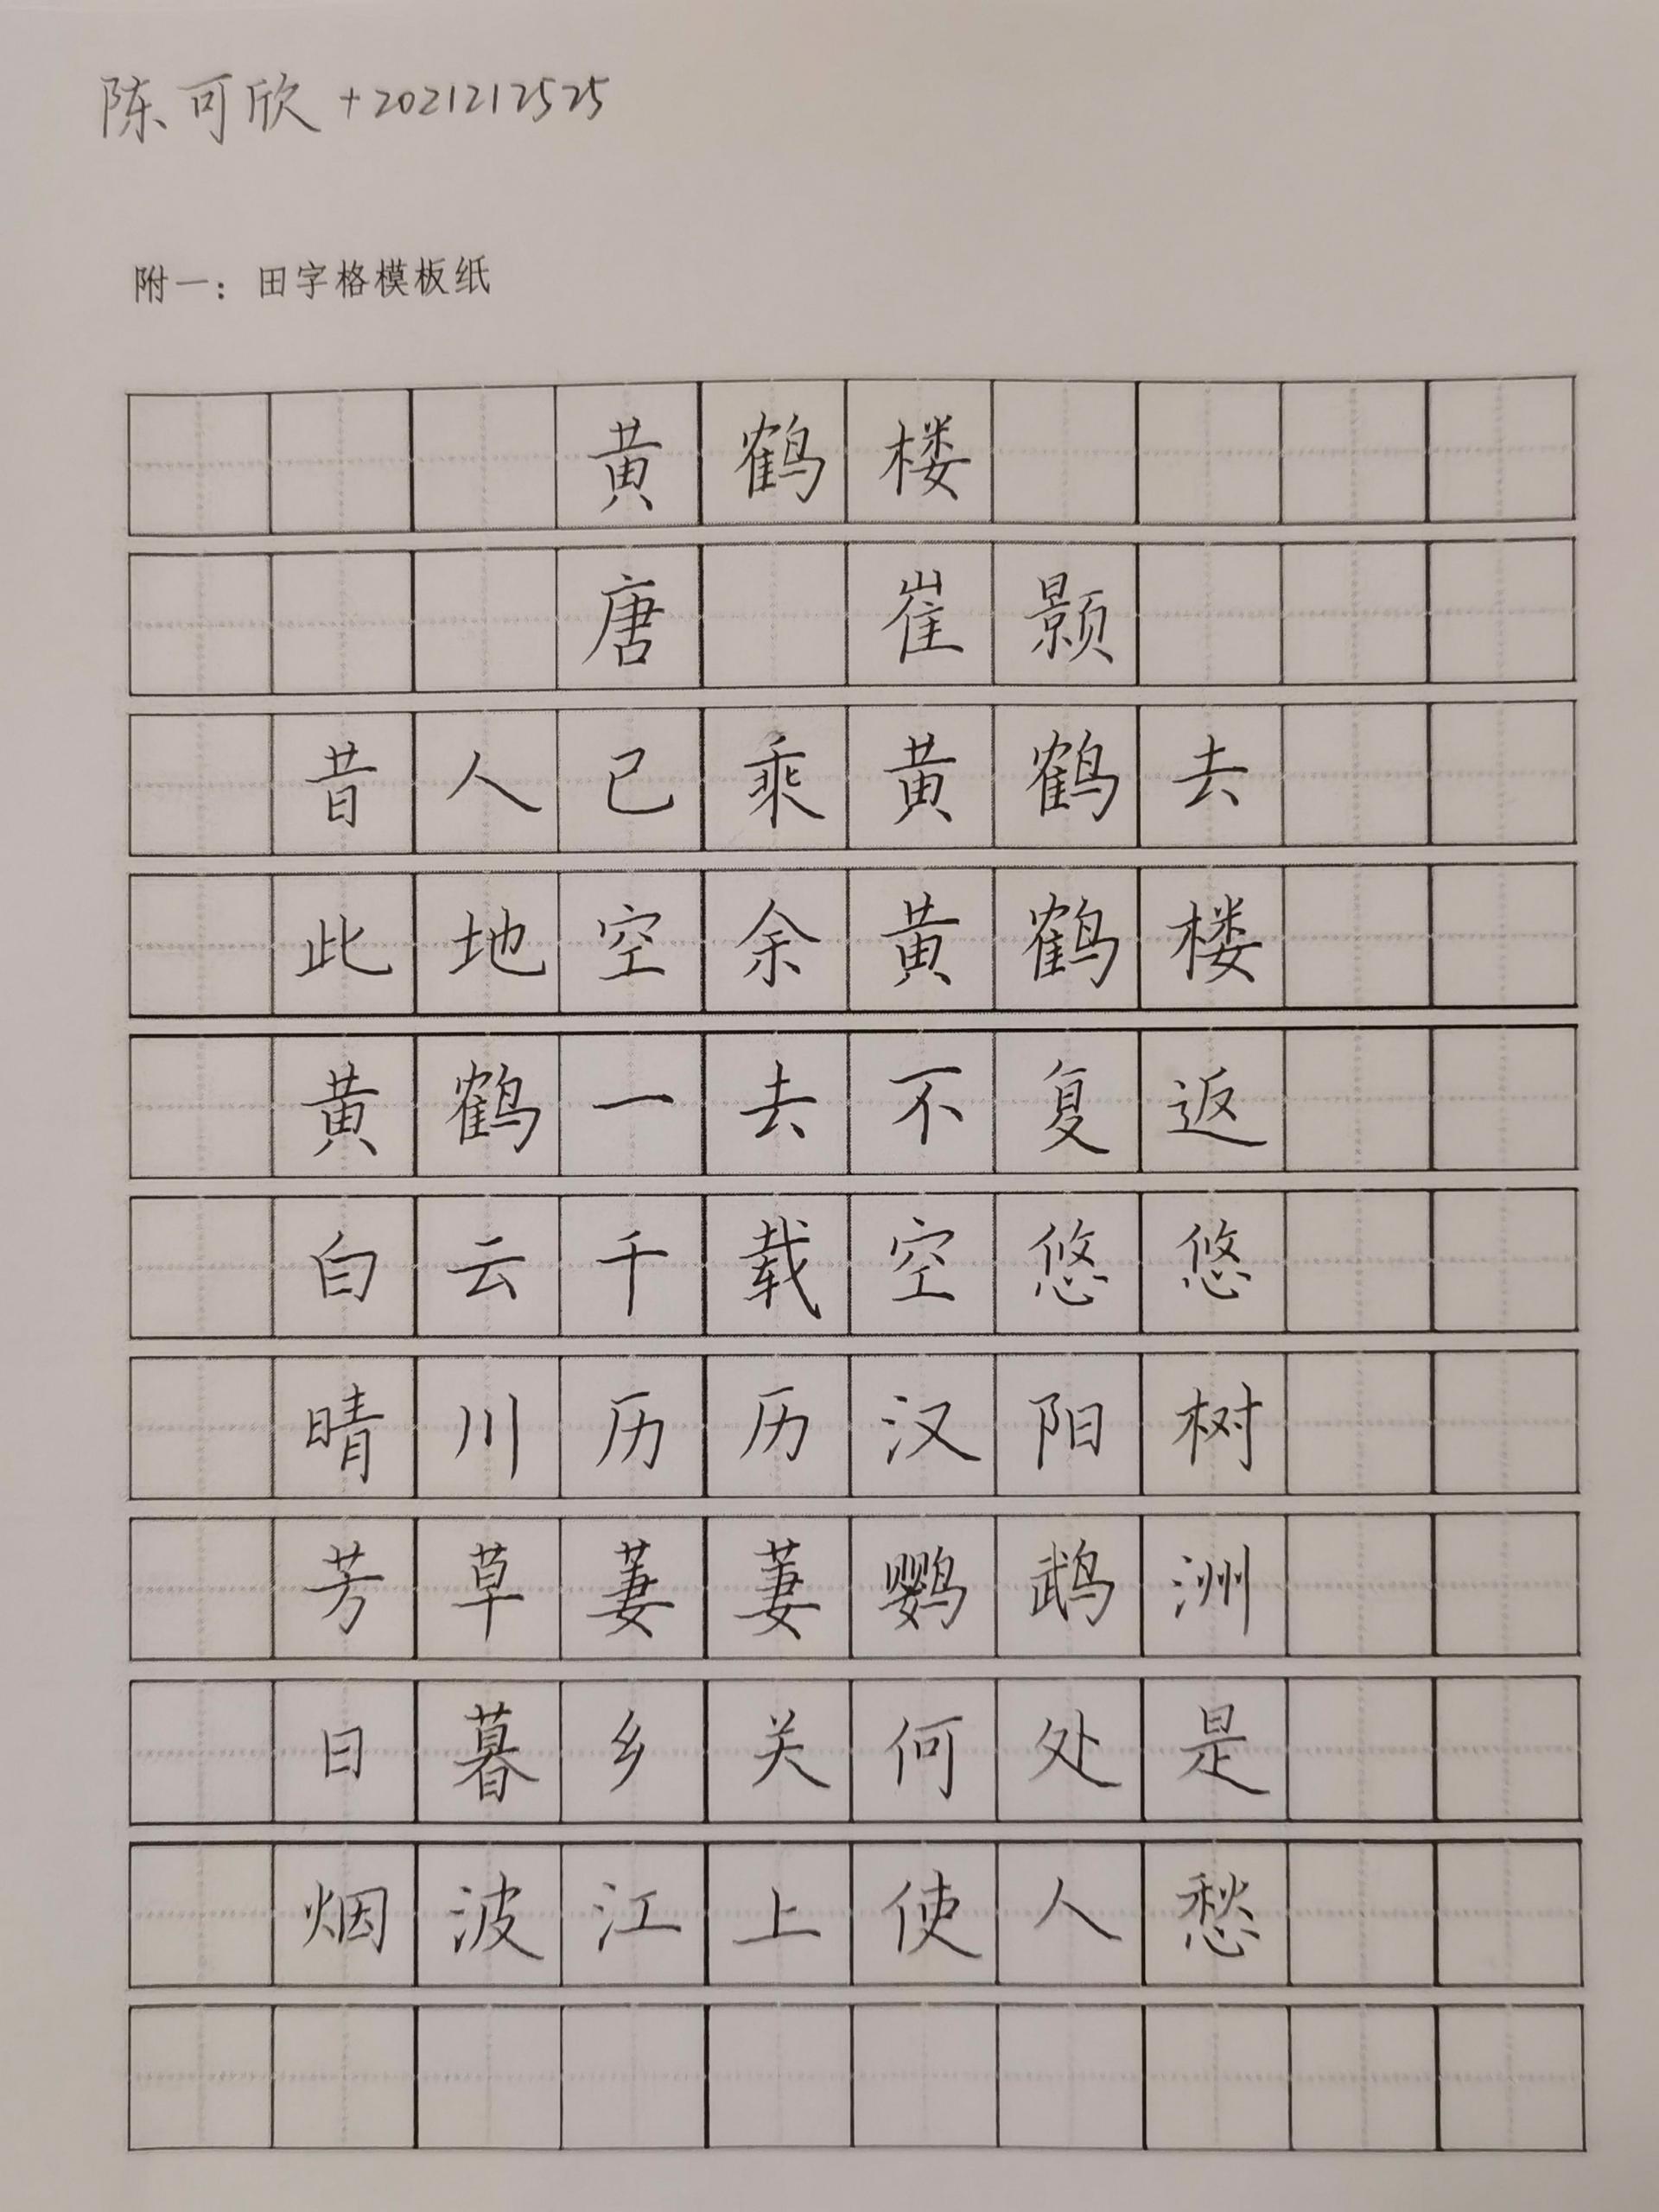 陈可欣+2021212525
附一：田字格模板纸
黄鹤楼
唐 崔颢
昔人已乘黄鹤去
此地空余黄鹤楼
黄鹤一去不复返
白云千载空悠悠
晴川历历汉阳树
芳草萋萋鹦鹉洲
日暮乡关何处是
烟波江上使人愁